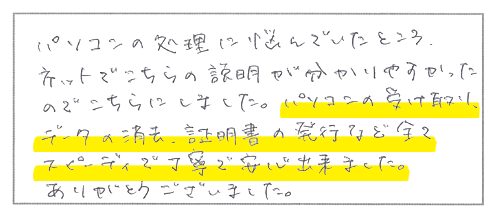 パソコンの処理に悩んでいたところ、
ネットでこちらの説明が分かりやすかった
のでこちらにしました。パソコンの受け取り、
データの消去、証明書の発行など全て
スピーディで丁寧で安心出来ました。
ありがとうございました。